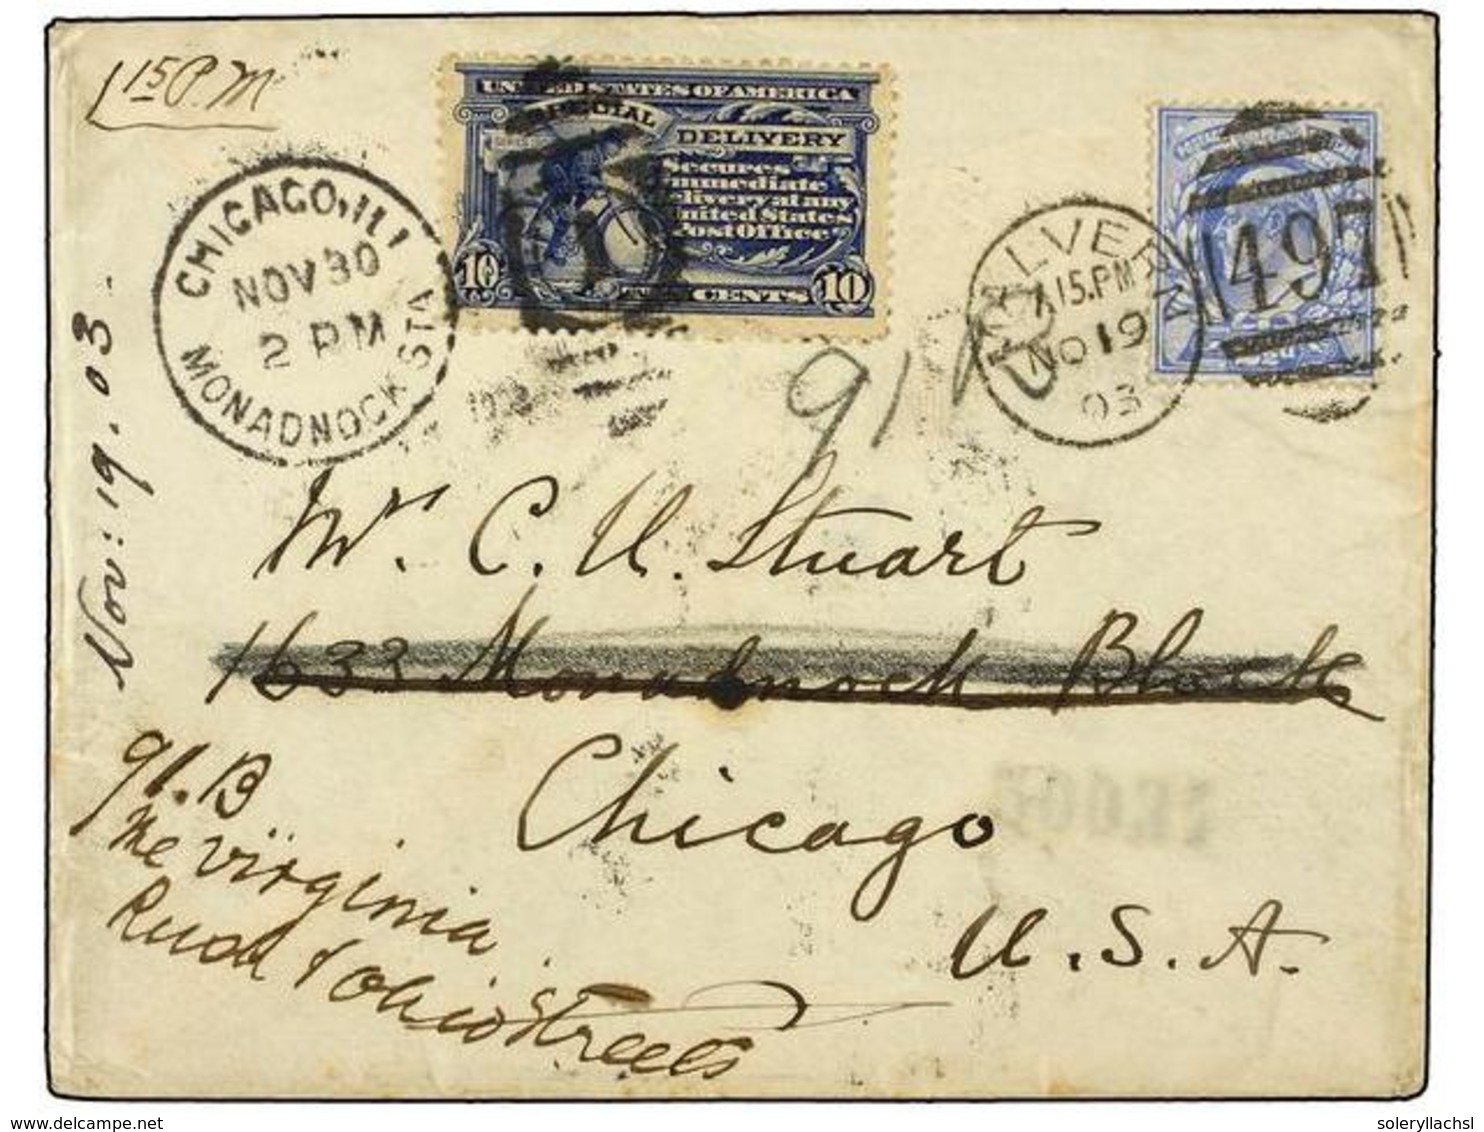 115 P.M
UNITED STATES OF AMERICA
SPECIAL
DELIVERY
Secures
immediate
delivery at any
United States
Post Office
10
TEN CENTS
10
CHICAGO, ILL
NOV 30
2 PM
MONADNOCK STA
MALVERN
7.15.PM
NO 19
03
497
Nov: 19. 03
91
Mr. C. U. Stuart
1633 Monadnock Block
Chicago
U. S. A.
91. B
The Virginia
Rush & Ohio Streets
www.delcampe.net
soleryllachsl